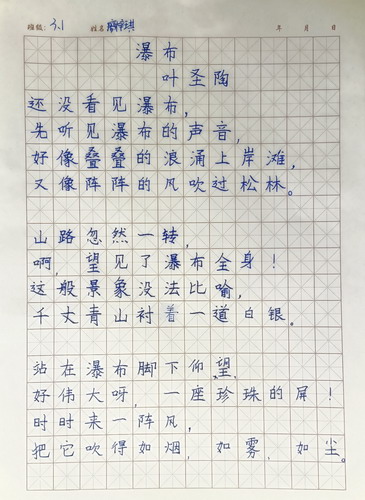 班级：3.1 姓名 年 月 日
瀑布
叶圣陶
还没看见瀑布，
先听见瀑布的声音，
好像叠叠的浪涌上岸滩，
又像阵阵的风吹过松林。
山路忽然一转，
啊，望见了瀑布全身！
这般景象没法比喻，
千丈青山衬着一道白银。
站在瀑布脚下仰望，
好伟大呀，一座珍珠的屏！
时时来一阵风，
把它吹得如烟，如雾，如尘。